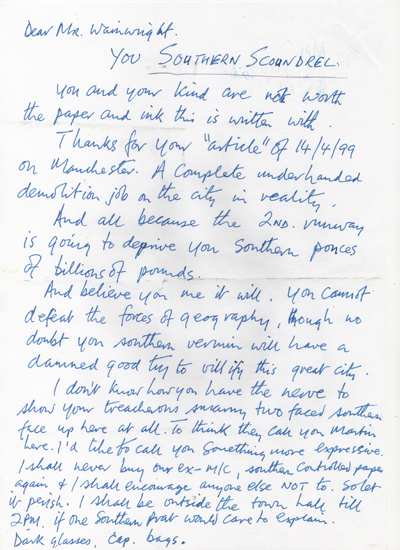 Dear Mr. Wainwright.
You SOUTHERN SCOUNDREL.
You and your kind are not worth
the paper and ink this is written with.
Thanks for your "article" of 14/4/99
on Manchester. A Complete underhanded
demolition job on the city in reality.
And all because the 2ND. runway
is going to deprive you Southern ponces
of billions of pounds.
And believe you me it will. You cannot
defeat the forces of geography, though no
doubt you southern vermin will have a
damned good try to villify this great city.
I don't know how you have the nerve to
show your treacherous smarmy two faced southern
face up here at all. To think they call you Martin
here. I'd like to call you Something more expressive.
I shall never buy our ex-M/C, southern Controlled paper
again & I shall encourage anyone else NOT to. So let
it perish. I shall be outside the town hall till
2PM. if one Southern Prat would care to explain.
Dark glasses, cap, bags.